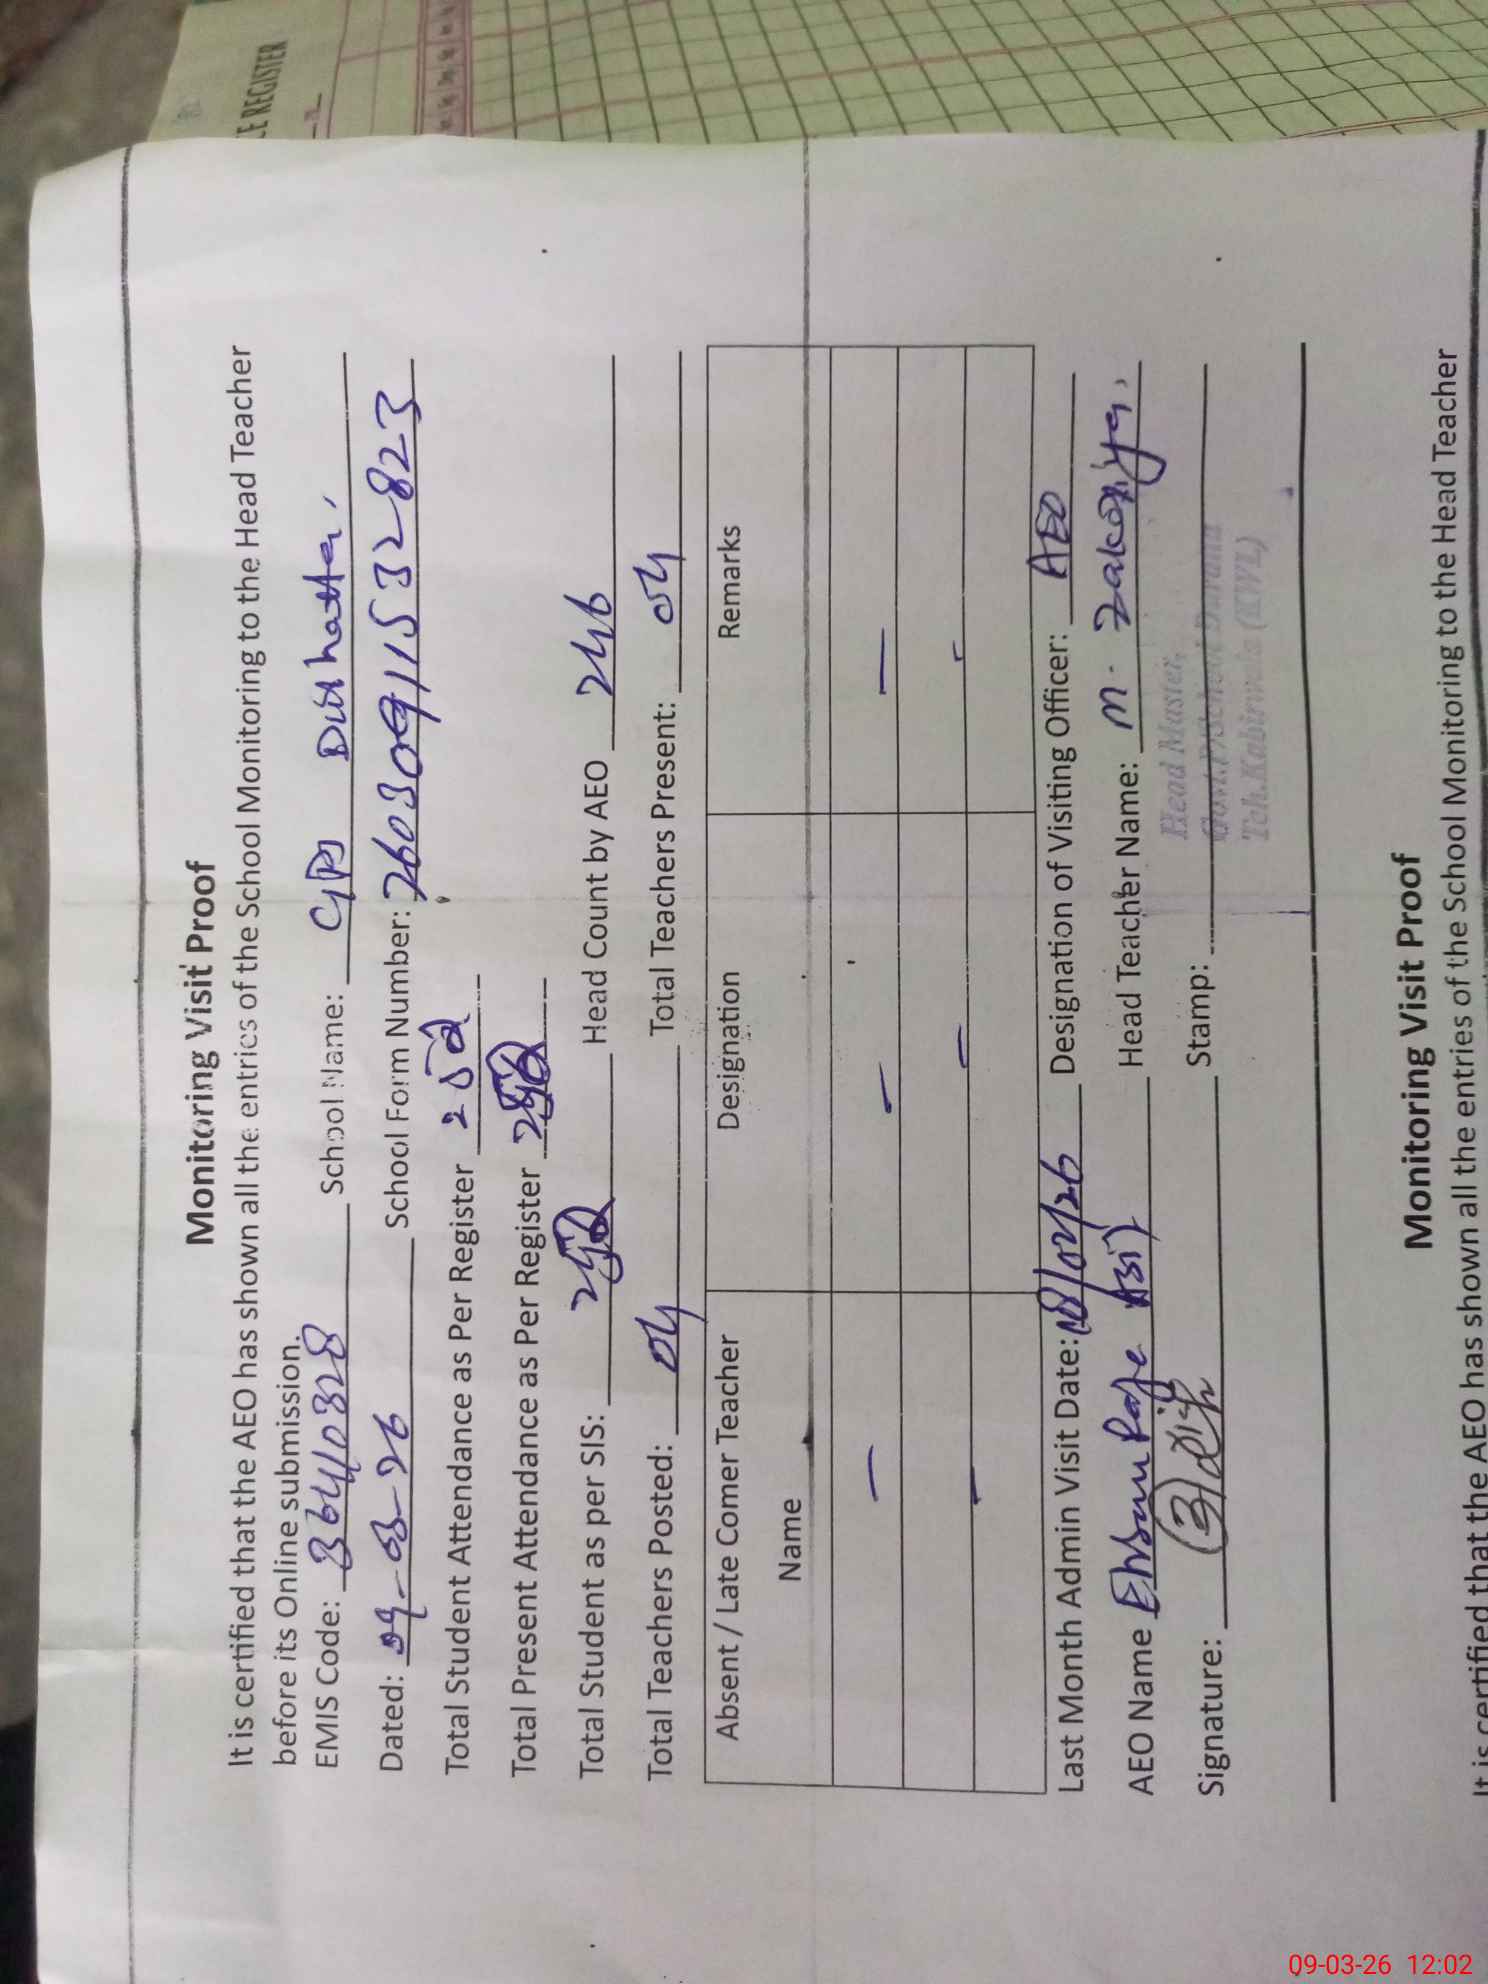 CE REGISTER
Monitoring Visit Proof
It is certified that the AEO has shown all the entries of the School Monitoring to the Head Teacher
before its Online submission.
EMIS Code: 36410328 School Name: GPS
Dated: 09-03-26 School Form Number: 260309115328 23
Total Student Attendance as Per Register 250
Total Present Attendance as Per Register
Total Student as per SIS: Head Count by AEO 246
Total Teachers Posted: 04 Total Teachers Present: 04
Absent / Late Comer Teacher Designation Remarks
Name
— — —
- - -
Last Month Admin Visit Date: 18/02/26 Designation of Visiting Officer: AEO
AEO Name Head Teacher Name: M. Zakariya.
Signature: Stamp:
Head Master,
Govt. P/School
Teh. Kabirwala (KWL)
Monitoring Visit Proof
It is certified that the AEO has shown all the entries of the School Monitoring to the Head Teacher
09-03-26 12:02